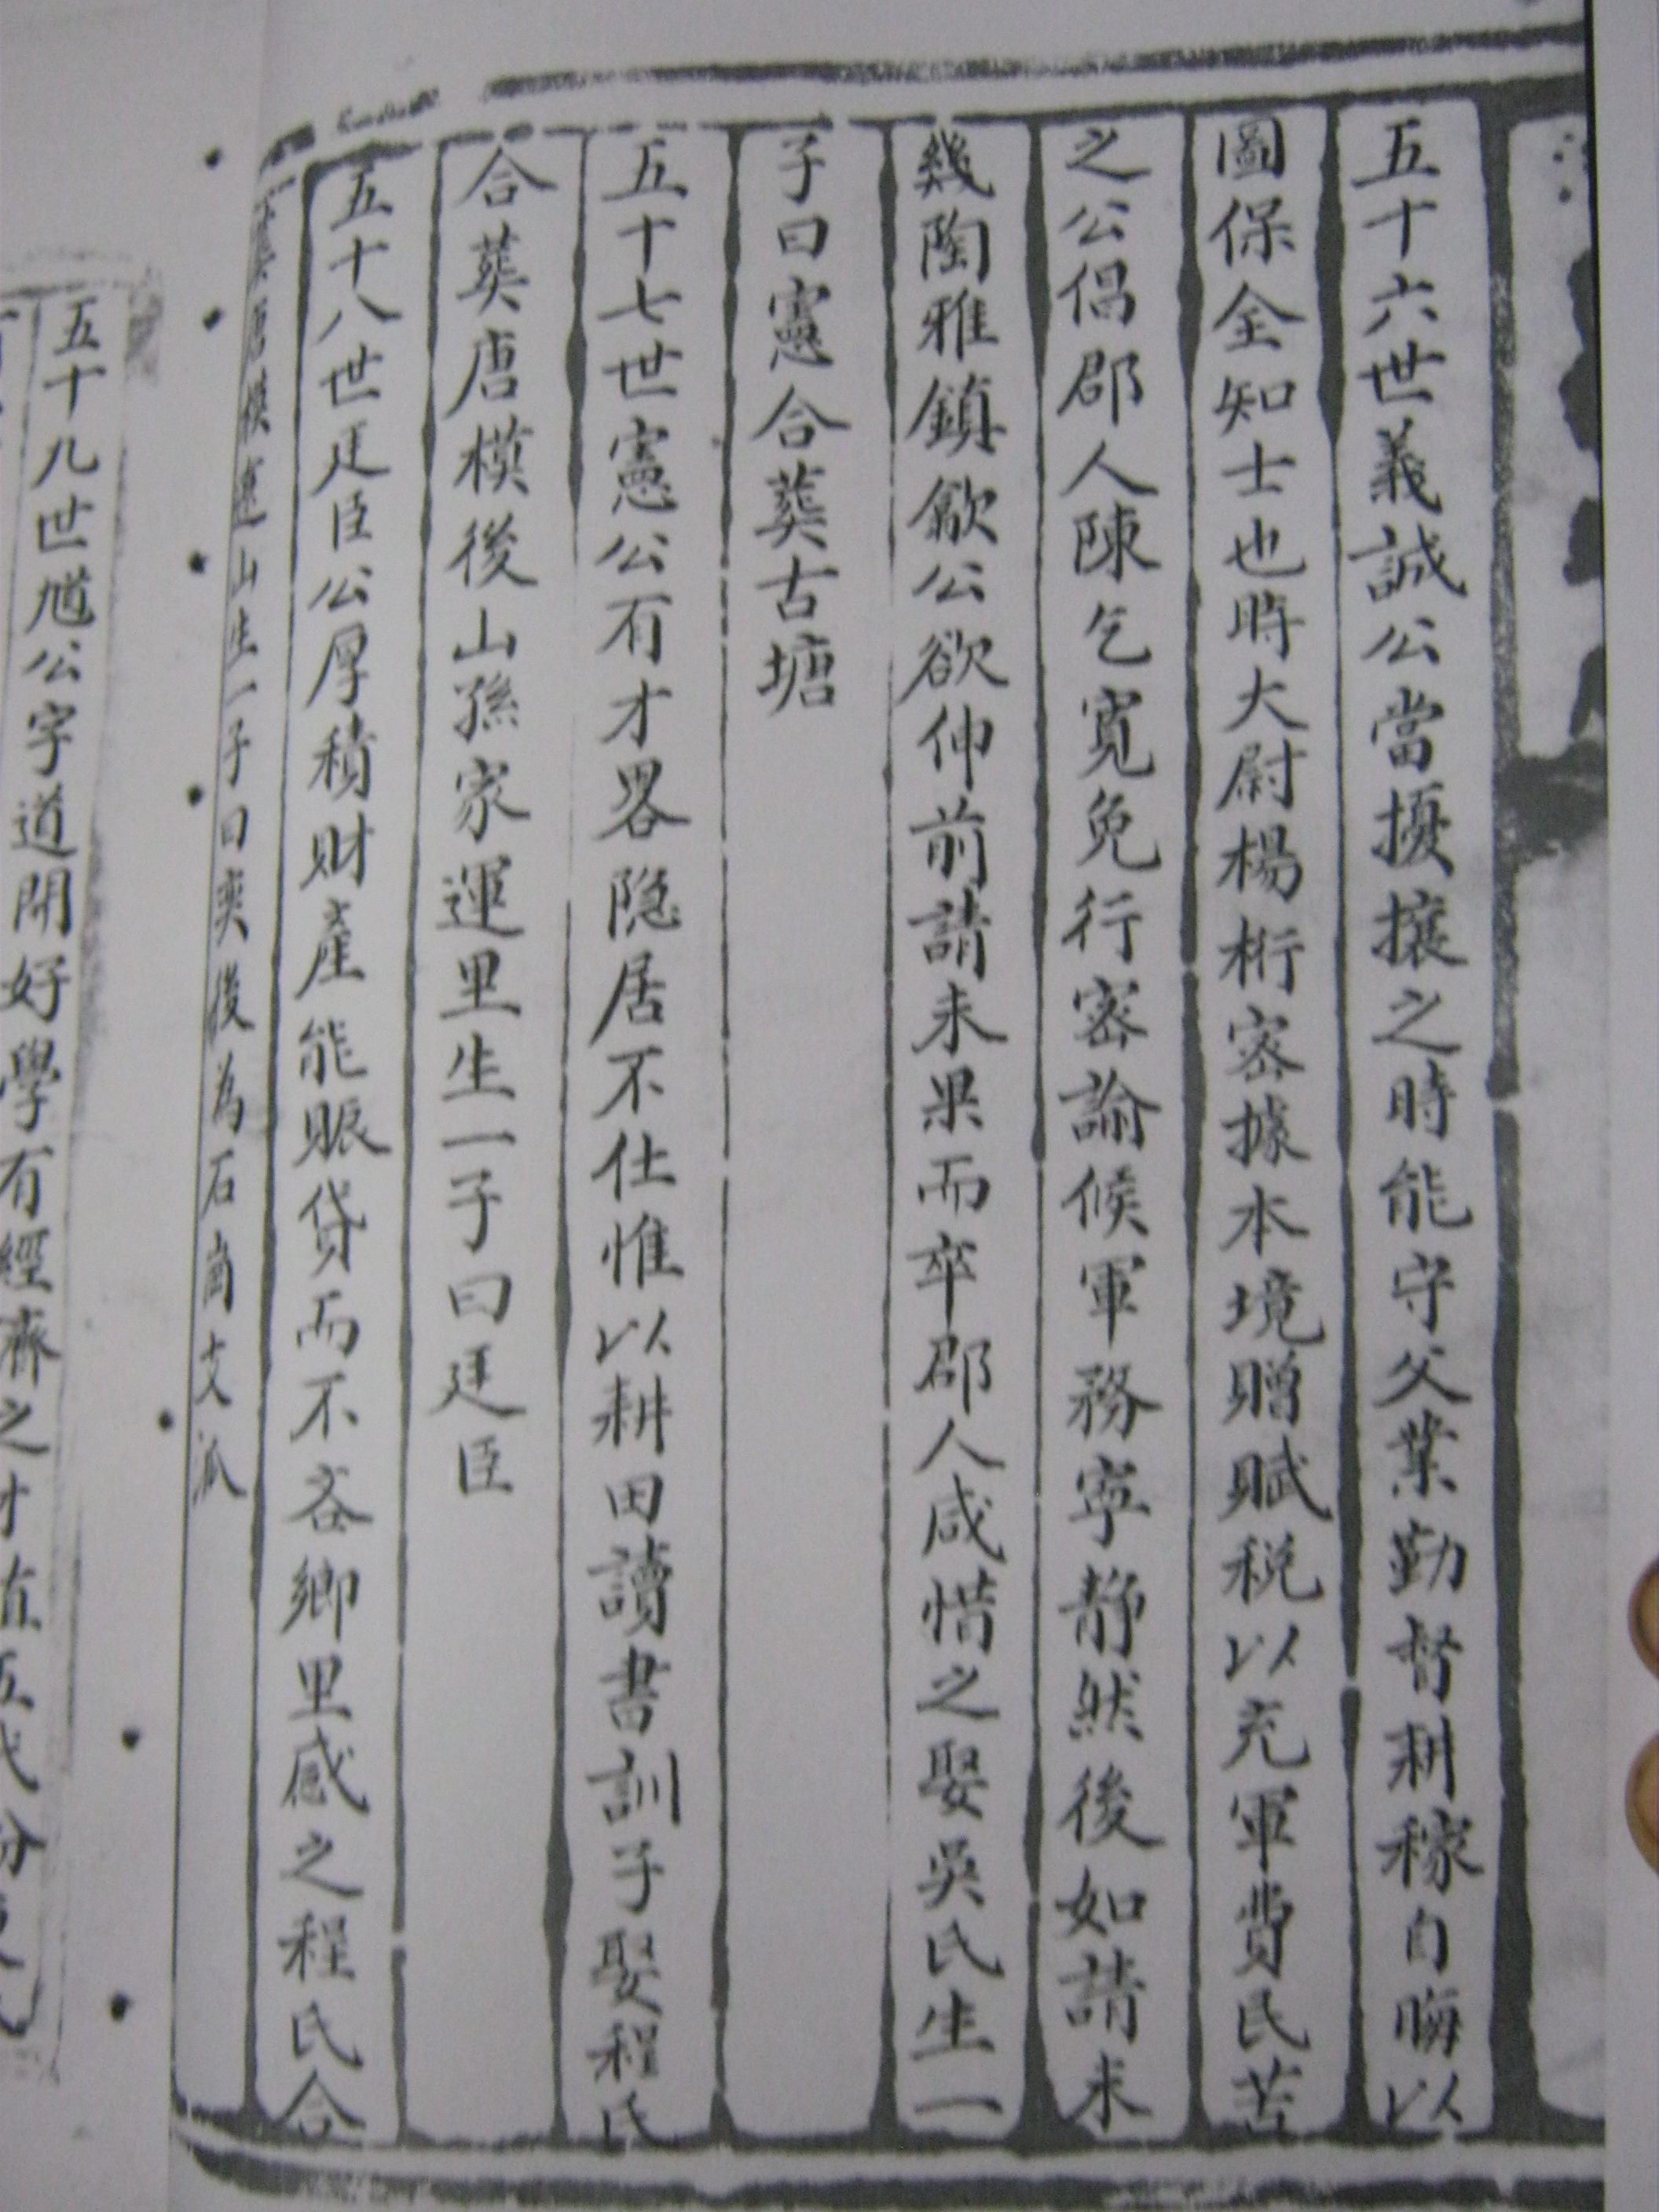 五十六世義誠公當擾攘之時能守父業勤督耕稼自晦以
圖保全知士也時大尉楊桁密據本境贈賦稅以充軍費民苦
之公倡郡人陳乞寬免行密諭候軍務寧静然後如請未
幾陶雅鎮歙公欲伸前請未果而卒郡人咸惜之娶吳氏生一
子曰憲合葬古塘
五十七世憲公有才畧隐居不仕惟以耕田讀書訓子娶程氏
合葬唐模後山孫家運里生一子曰廷臣
五十八世廷臣公厚積財產能賑貸而不吝鄉里感之程氏合
葬唐模連山生一子曰奕後為石崗支派
五十九世馗公字道開好學有經濟之才值五代